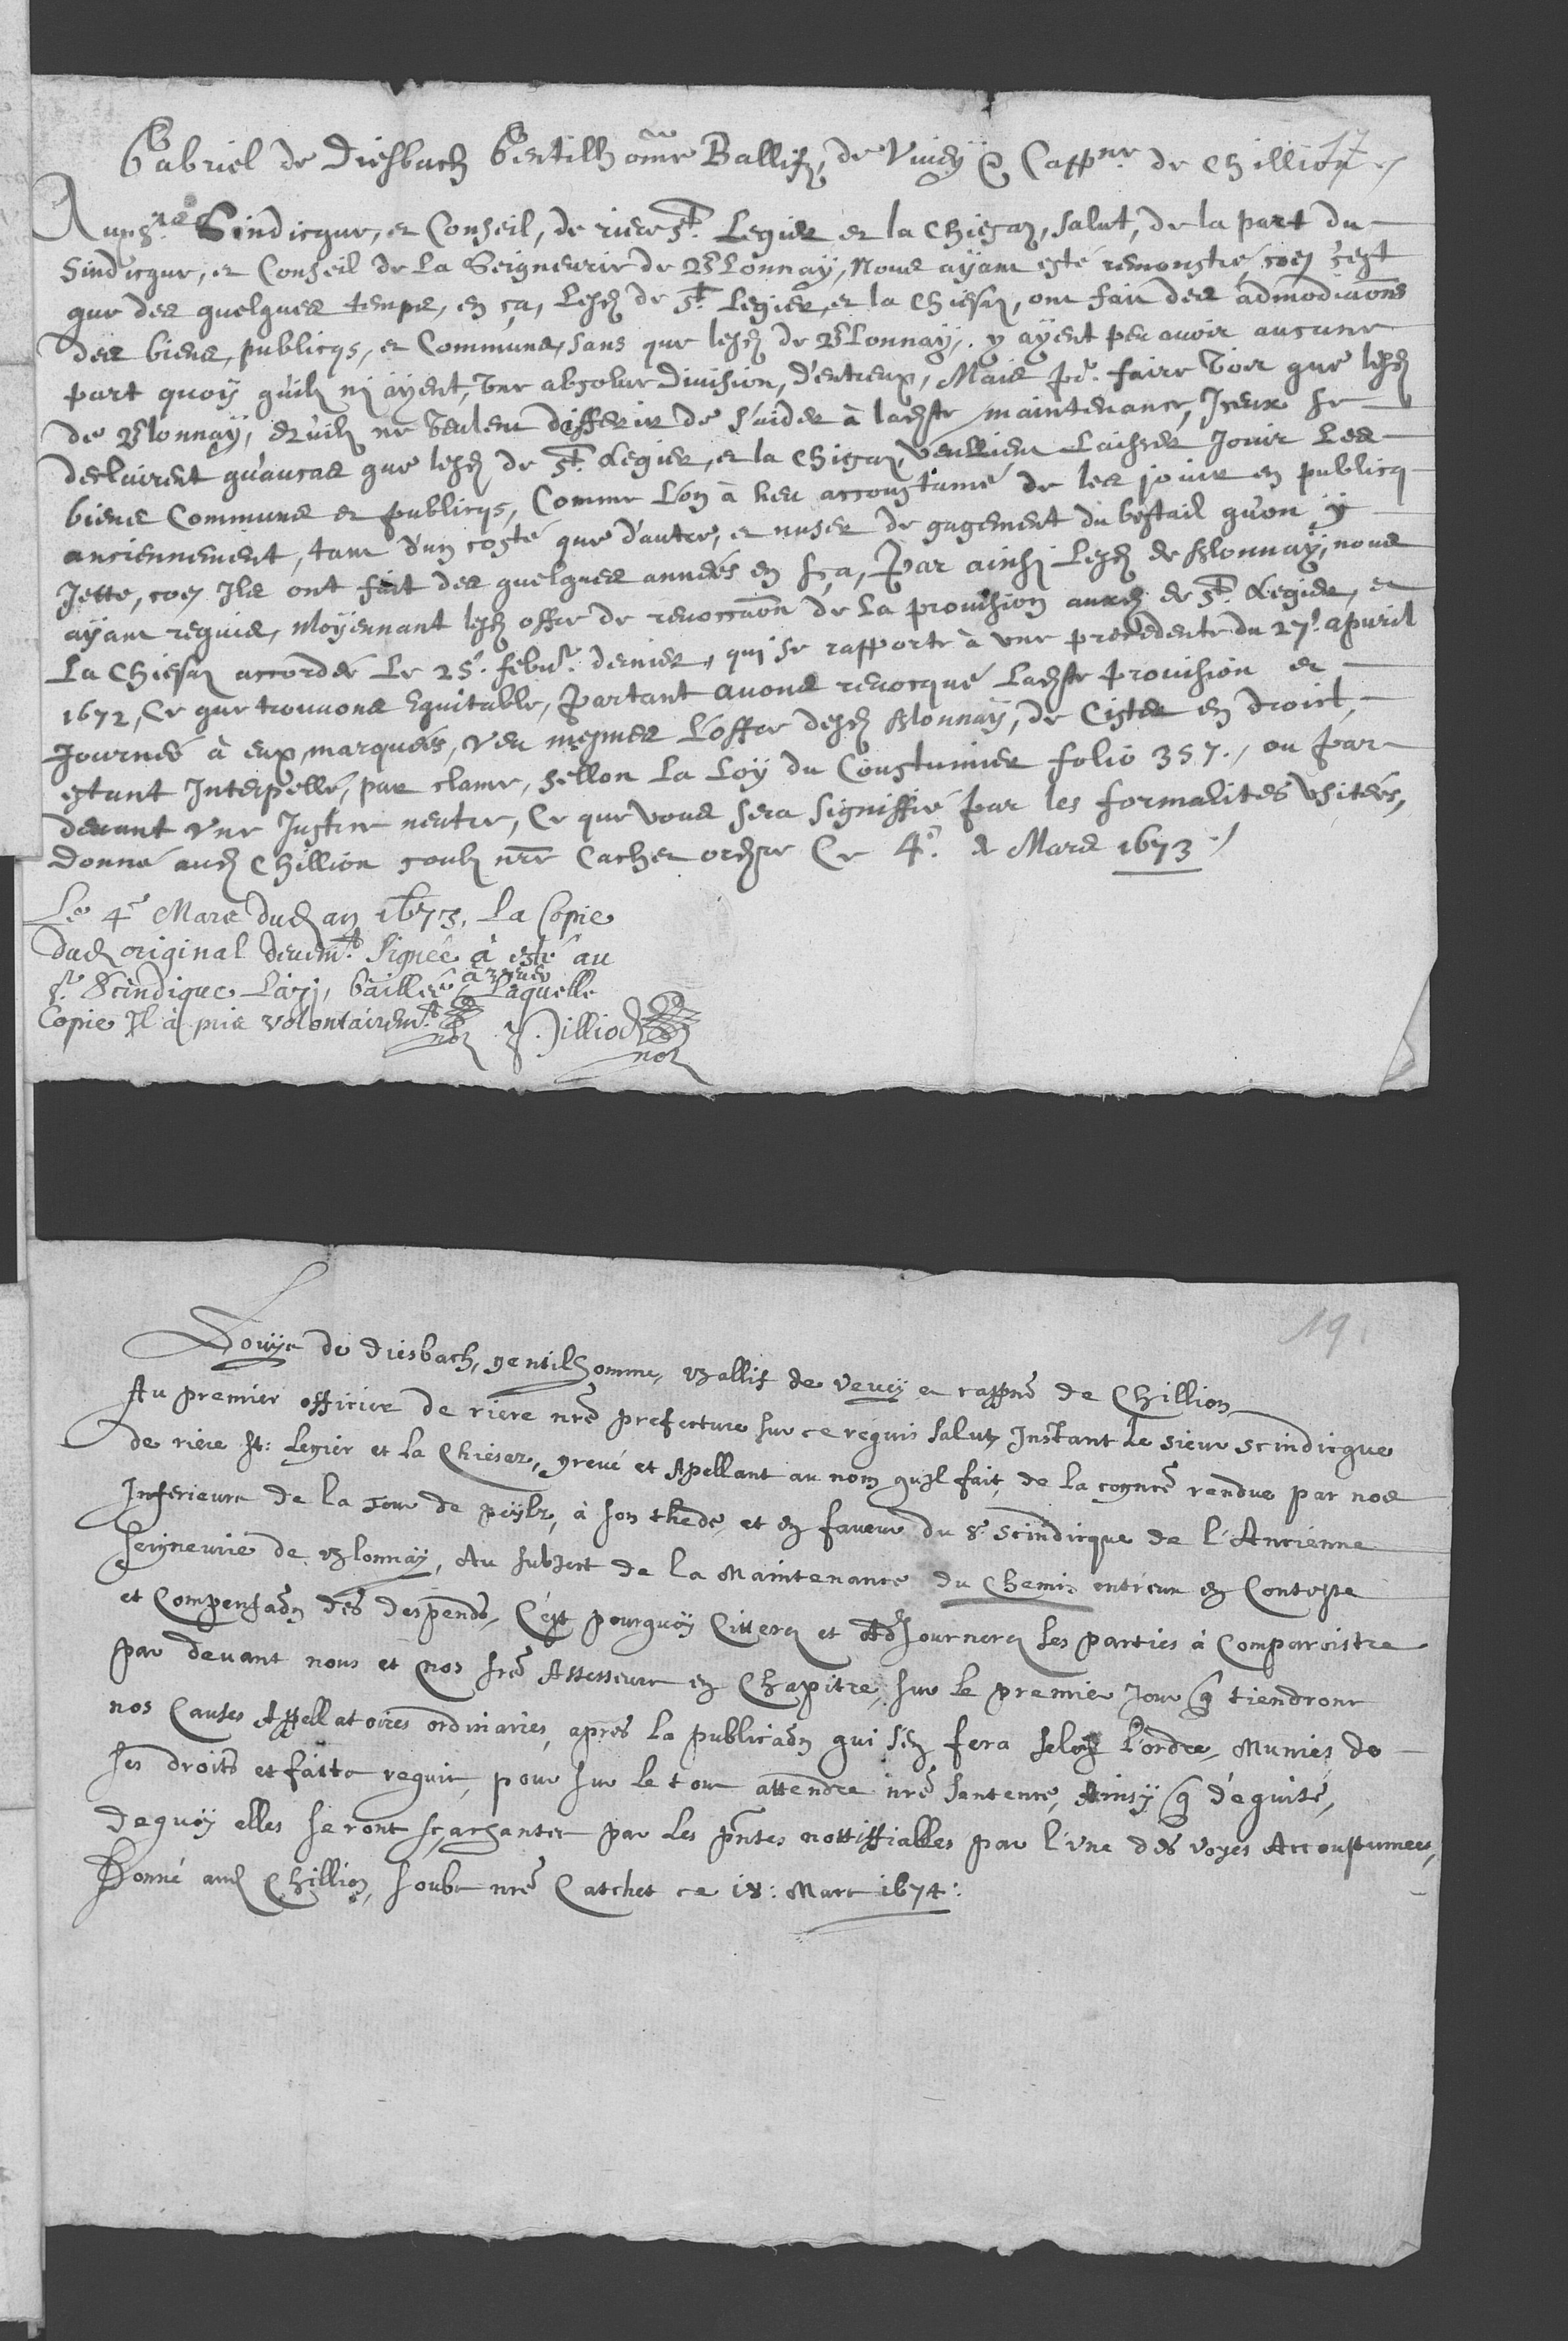 17
Gabriel de Diesbach Gentilhome Ballif, de Vivey & Cappne de Chillion
Aux Srs Sindicque, et Conseil, de riere St. Legier et la Chiesaz, salut, de la part du
Sindicque, et Conseil de La Seigneurie de Blonnaÿ, Nous aÿant esté remonstré, coe c'est
que des quelques temps, en ça, Lesd de St. Legier, et la Chiesaz, ont fait des admodiaons
des biens, publicqs, et Communs, sans que lesd de Blonnaÿ, y aÿent peu avoir aucune
part quoÿ qu'ilz nj aÿent, une absolue Division, d'entreux, Mais pr. faire voir que lesd
de Blonnaÿ, ne veulent differir de s'aider à ladte maintenance, Iceux se
desclairent qu'aucas que lesd de St. Legier, et la Chiesaz, veullient Laisser Jouir Les
biens Communs et publicqs, Comme L'on à heu accoustumé de les jouir en publicq
anciennement, tant d'un costé que d'autre, et nuser de gagement du bestail qu'on ÿ
Jette, coe Ils ont fait des quelques années en sça, Par ainsi Lesd de Blonnaÿ, nous
aÿant requis, Moÿennant lesd offre de revoccaon de La provision auxd de St. Legier, et
La Chiesaz accordée Le 25e. febvr. dernier, qui se rapporte à une precedente du 27e. apvril
1672, Ce que trouvons Equitable, Partant avons revocqué Ladte provision et
Journée à eux marquées, veu mesmes L'offre desd Blonnaÿ, de Cister en droict,
estant Interpellé, par clame, sellon La Loÿ du Coustumier folio 357., ou par
devant une Justice neutre, Ce que vous sera signiffié par les formalites usitées,
Donné aud Chillion soubz nre Cachet ordre Ce 4e. de Mars 1673
Le 4e Mars dud an 1673, La Copie
dud original devemt. Signée à esté au
Sr. Scindique baillée à Laquelle
Copie Il à pris volontairemt.
not
19.
Louÿs de Diesbach, gentilhomme, Ballif de Vevey et cappne de Chillion
Au premier officier de riere nre prefecture sur ce requis salut, Instant le Sieur Scindicque
de riere St: Legier et la Chiesez, grevé et Apellant au nom qu'Il fait, de la cognce rendue par nos
Inferieurs de la Tour de peylz, à son thede, et en faveur du Sr Scindicque de l'Ancienne
Seigneurie de Blonnaÿ, Au subject de la Maintenance du Chemin entreux en Conteste
et Compensaon des despends, C'est pourquoÿ Citterez et Adjournerez les parties à Comparoistre
par devant nous et nos sres Assesseurs en Chapitre, sur le premier Jour q tiendrons
nos Causes Appellatoires ordinaires, apres la publicaon qui s'en fera selon l'ordre, Munies de
ses droits et faitts requis, pour sur le tout attendre nre sentence, Ainsy q d'equité,
dequoÿ elles seront par les pntes nottiffiables par l'une des voyes Accoustumees,
Donné aud Chillion, soubz nre Catchet ce 18: Mars 1674: